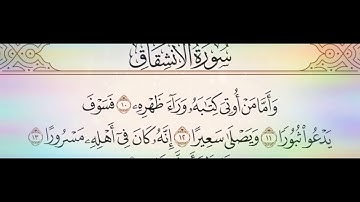 سُورَةُ الِانشِقَاقِ
وَأَمَّا مَنْ أُوتِىَ كِتَٰبَهُۥ وَرَآءَ ظَهْرِهِۦ ١٠ فَسَوْفَ
يَدْعُوا۟ ثُبُورًا ١١ وَيَصْلَىٰ سَعِيرًا ١٢ إِنَّهُۥ كَانَ فِىٓ أَهْلِهِۦ مَسْرُورًا ١٣